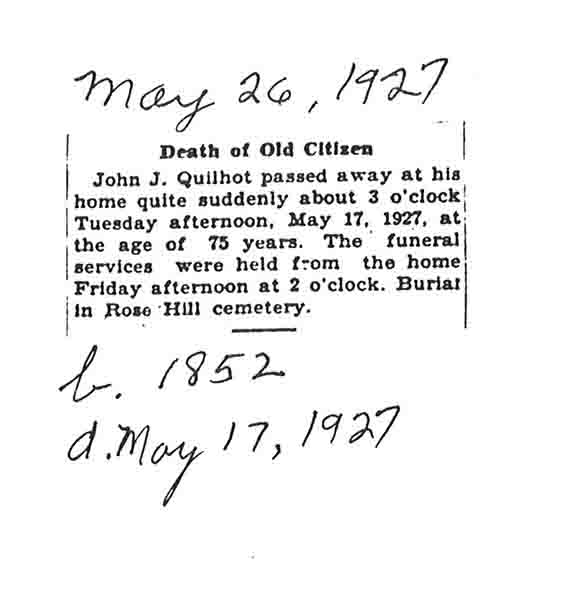 May 26, 1927
Death of Old Citizen
John J. Quilhot passed away at his
home quite suddenly about 3 o'clock
Tuesday afternoon, May 17, 1927, at
the age of 75 years. The funeral
services were held from the home
Friday afternoon at 2 o'clock. Burial
in Rose Hill cemetery.
b. 1852
d. May 17, 1927